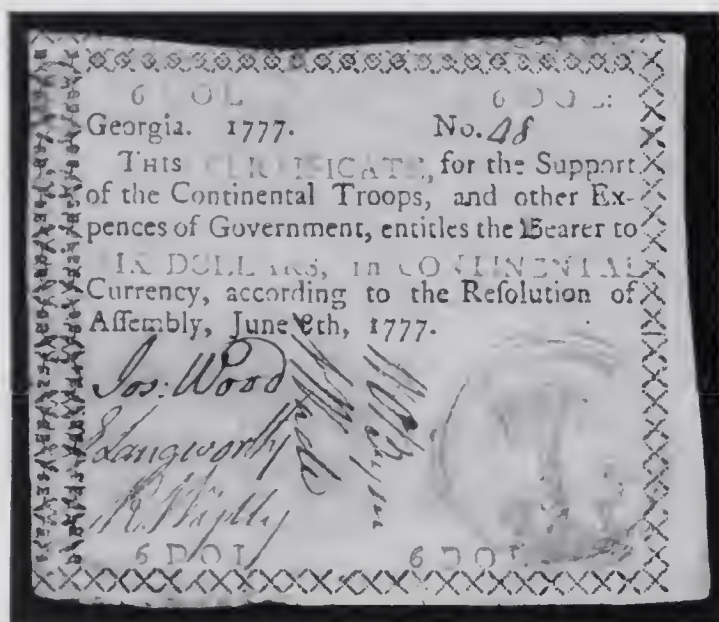 6 DOL 6 DOL:
Georgia. 1777. No. 48
THIS CERTIFICATE, for the Support
of the Continental Troops, and other Ex-
pences of Government, entitles the Bearer to
SIX DOLLARS, in CONTINENTAL
Currency, according to the Reſolution of
Aſſembly, June 8th, 1777.
Jos: Wood
E Langworthy
R. Wylly
6 DOL 6 DOL